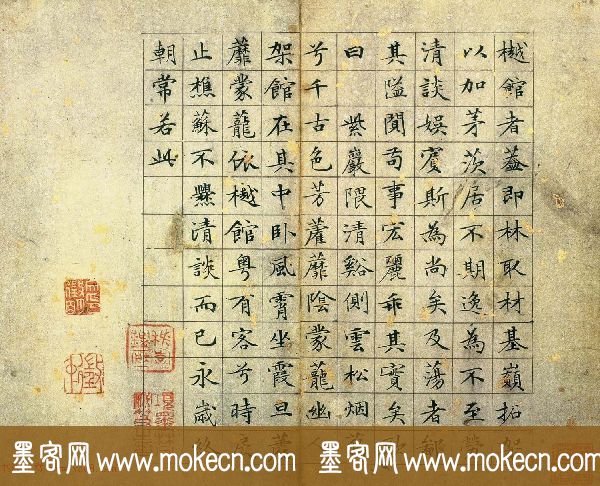 樾館者蓋即林取材基巔拓架
以加茅茨居不期逸為不至勞
清談娛賓斯為尚矣及蕩者鄙
其隘閴苟事宏麗乖其實矣
曰 紫巖隈清谿側雲松烟
兮千古色芳藿蘼陰蒙蘢幽人
架館在其中臥風霄坐霞旦
蘼蒙蘢依樾館粵有客兮時戾
止樵蘇不爨清談而已永歲終
朝常若此
墨客网 www.mokecn.com 墨客网 www.mokecn.com